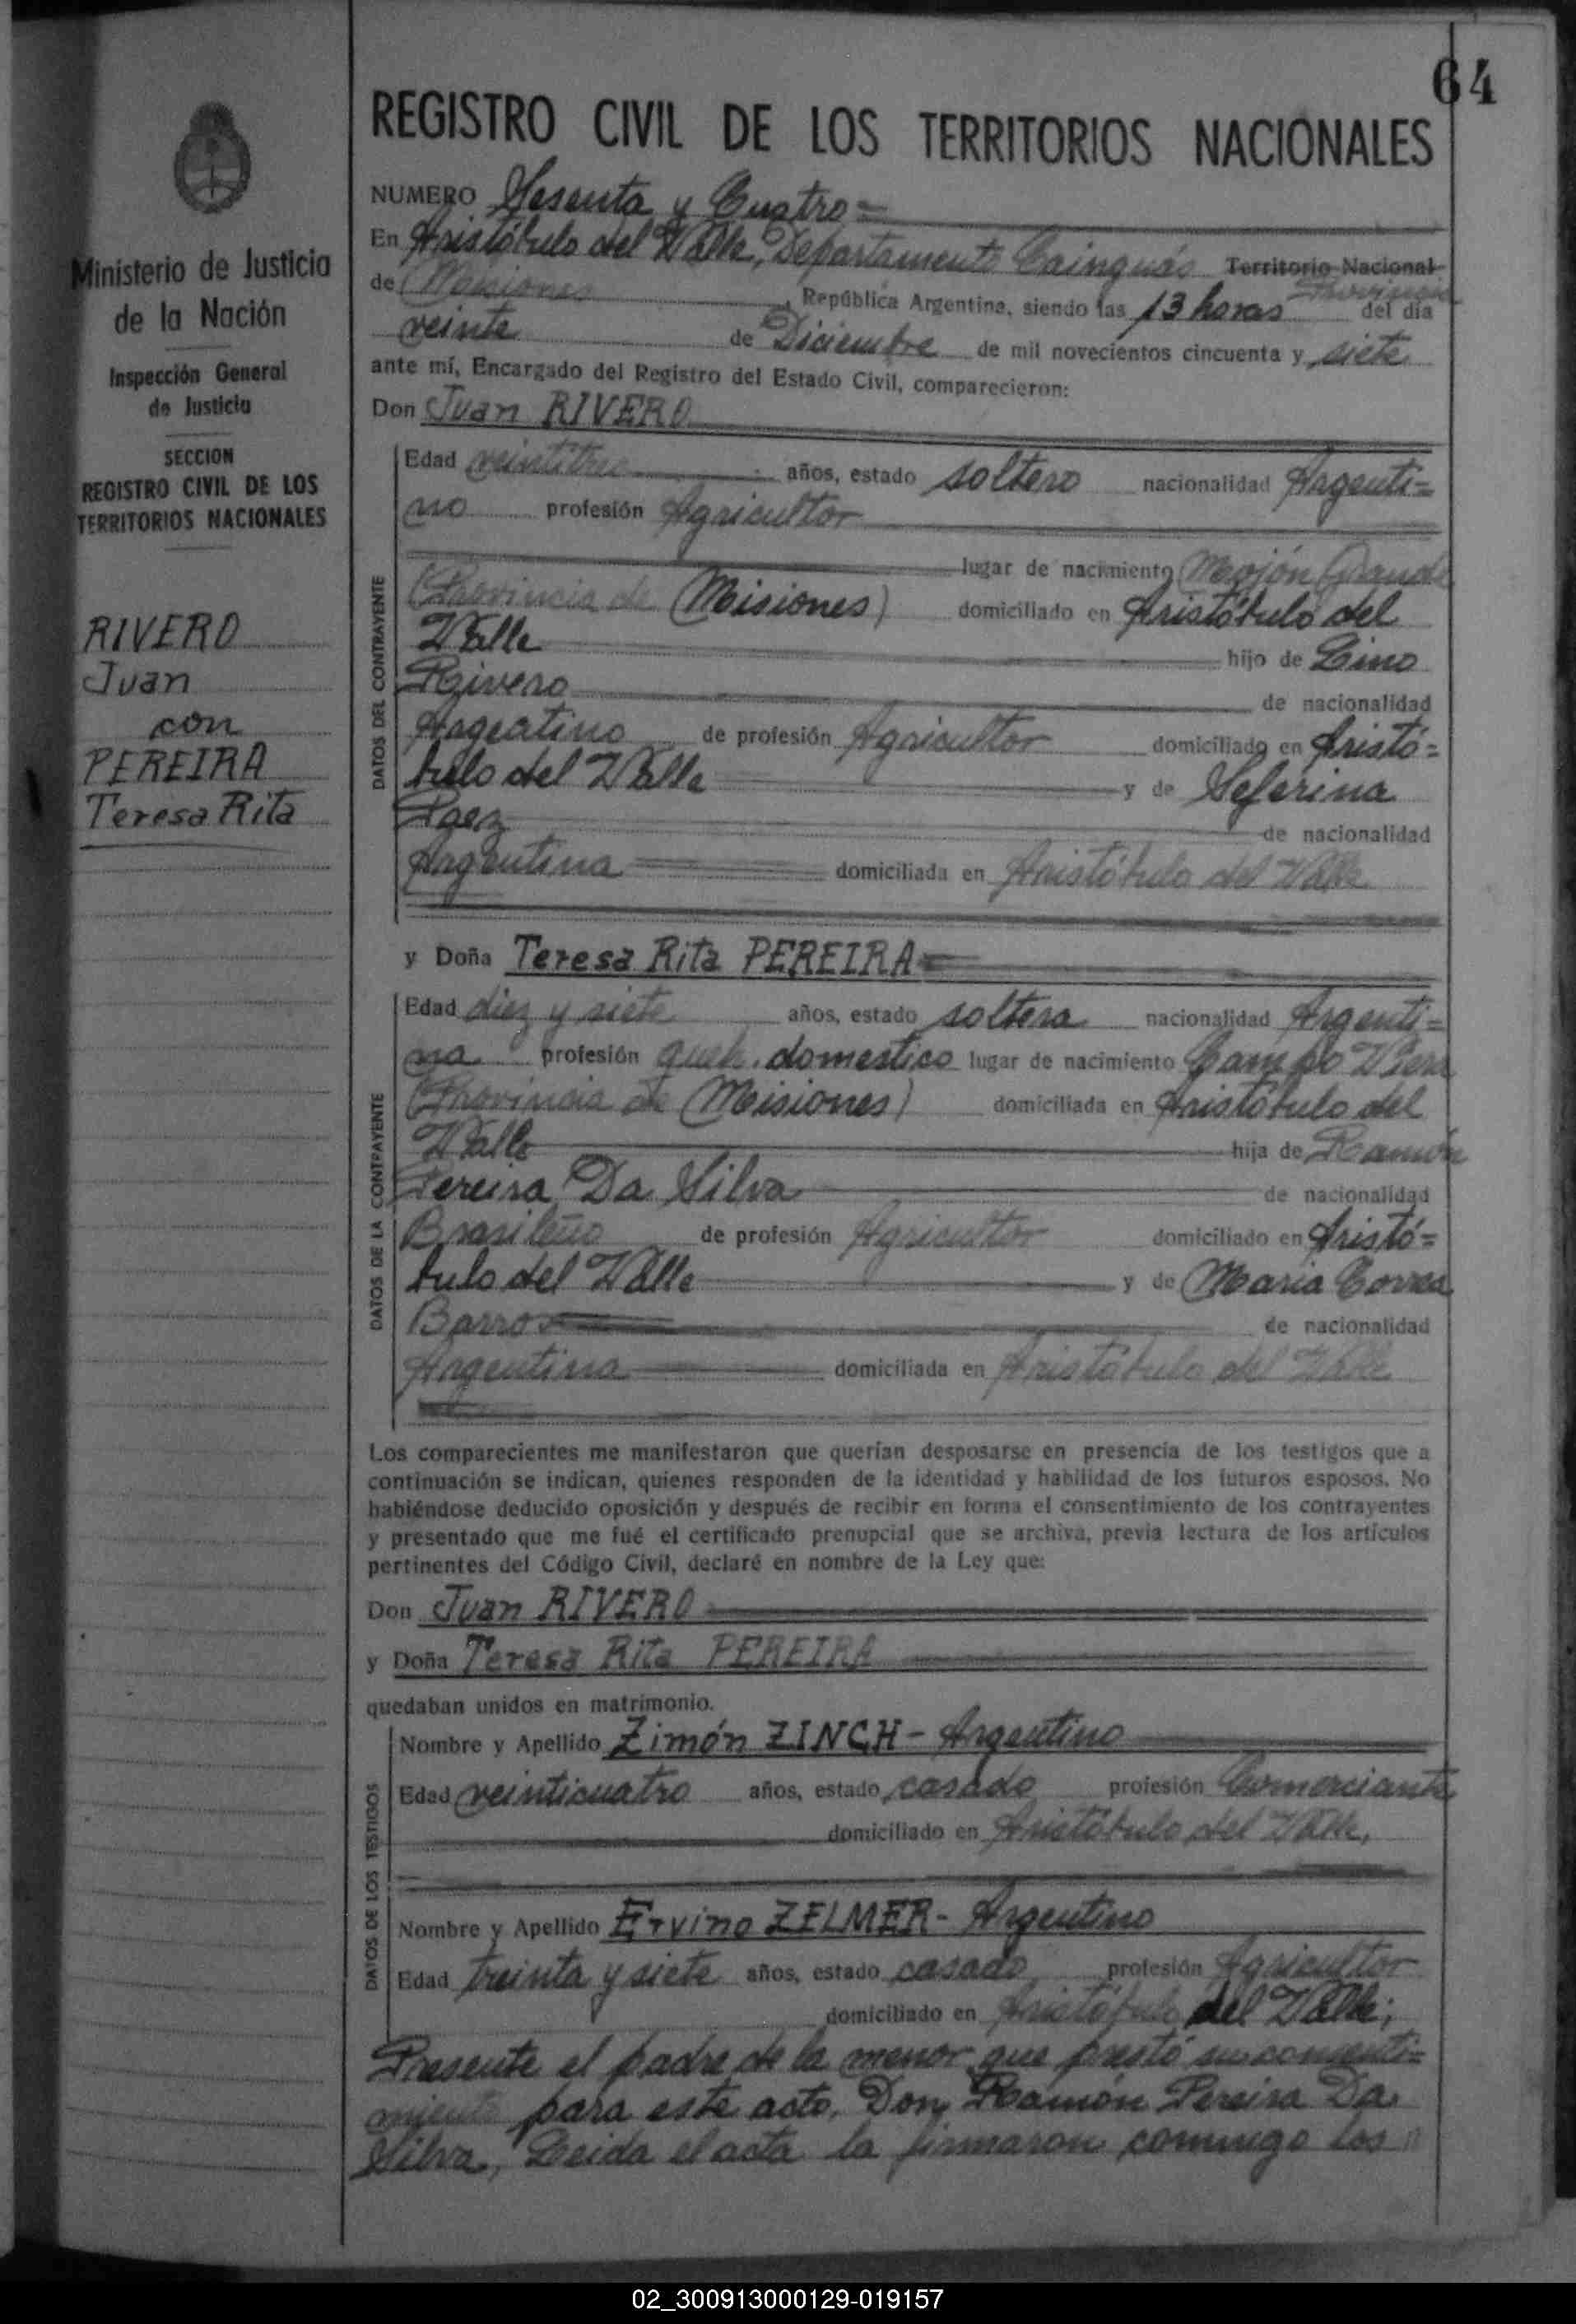 64
REGISTRO CIVIL DE LOS TERRITORIOS NACIONALES
Ministerio de Justicia
de la Nación
Inspección General
de Justicia
SECCION
REGISTRO CIVIL DE LOS
TERRITORIOS NACIONALES
RIVERO
Juan
con
PEREIRA
Teresa Rita
NUMERO Sesenta y Cuatro=
En Aristóbulo del Valle, Departamento Cainguás Territorio Nacional
Provincia
de Misiones, República Argentina, siendo las 13 horas del día
veinte de Diciembre de mil novecientos cincuenta y siete
ante mí, Encargado del Registro del Estado Civil, comparecieron:
Don Juan RIVERO
DATOS DEL CONTRAYENTE
Edad veintitres años, estado soltero nacionalidad Argenti=
no profesión Agricultor
lugar de nacimiento Mojón Grande
(Provincia de Misiones) domiciliado en Aristóbulo del
Valle hijo de Lino
Rivero de nacionalidad
Argentino de profesión Agricultor domiciliado en Aristó=
bulo del Valle y de Seferina
Paez de nacionalidad
Argentina domiciliada en Aristóbulo del Valle
y Doña Teresa Rita PEREIRA=
DATOS DE LA CONTRAYENTE
Edad diez y siete años, estado soltera nacionalidad Argenti=
na profesión queh. domestico lugar de nacimiento Campo Viera
(Provincia de Misiones) domiciliada en Aristóbulo del
Valle hija de Ramón
Pereira Da Silva de nacionalidad
Brasileño de profesión Agricultor domiciliado en Aristó=
bulo del Valle y de Maria Correa
Barros de nacionalidad
Argentina domiciliada en Aristóbulo del Valle
Los comparecientes me manifestaron que querían desposarse en presencia de los testigos que a
continuación se indican, quienes responden de la identidad y habilidad de los futuros esposos. No
habiéndose deducido oposición y después de recibir en forma el consentimiento de los contrayentes
y presentado que me fué el certificado prenupcial que se archiva, previa lectura de los artículos
pertinentes del Código Civil, declaré en nombre de la Ley que:
Don Juan RIVERO
y Doña Teresa Rita PEREIRA
quedaban unidos en matrimonio.
DATOS DE LOS TESTIGOS
Nombre y Apellido Zimón ZINCH - Argentino
Edad veinticuatro años, estado casado profesión Comerciante
domiciliado en Aristóbulo del Valle,
Nombre y Apellido Ervino ZELMER - Argentino
Edad treinta y siete años, estado casado profesión Agricultor
domiciliado en Aristóbulo del Valle;
Presente el padre de la menor que prestó su consenti=
miento para este acto, Don Ramón Pereira Da
Silva, Leida el acta la firmaron conmigo los
02_300913000129-019157